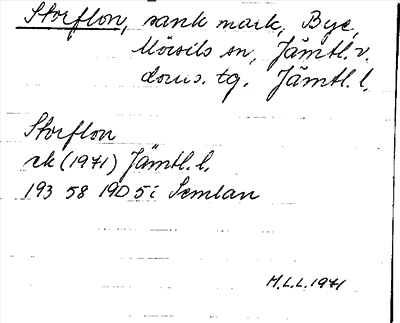 Storflon, sank mark, Bye,
Mörsils sn, Jämtl. v.
doms. tg. Jämtl. l.
Storflon
ek (1971) Jämtl. l.
193 58 19D 5i Semlan
H.L.L. 1971